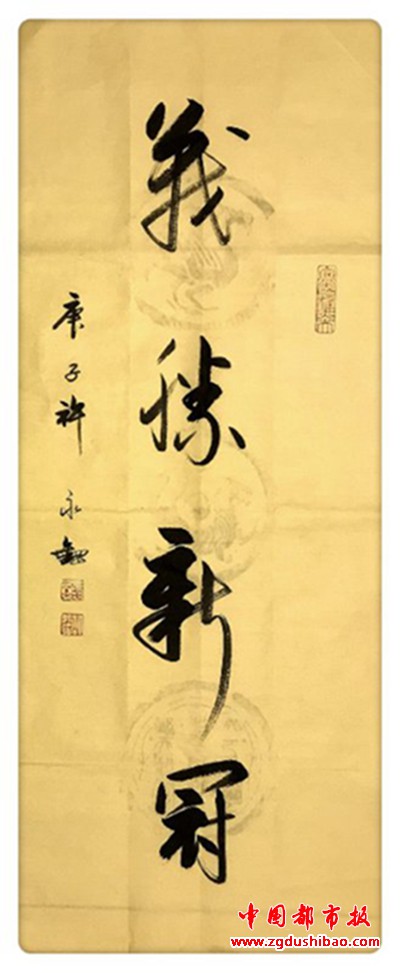 戰勝新冠
庚子許永
中国都市报
www.zgdushibao.com